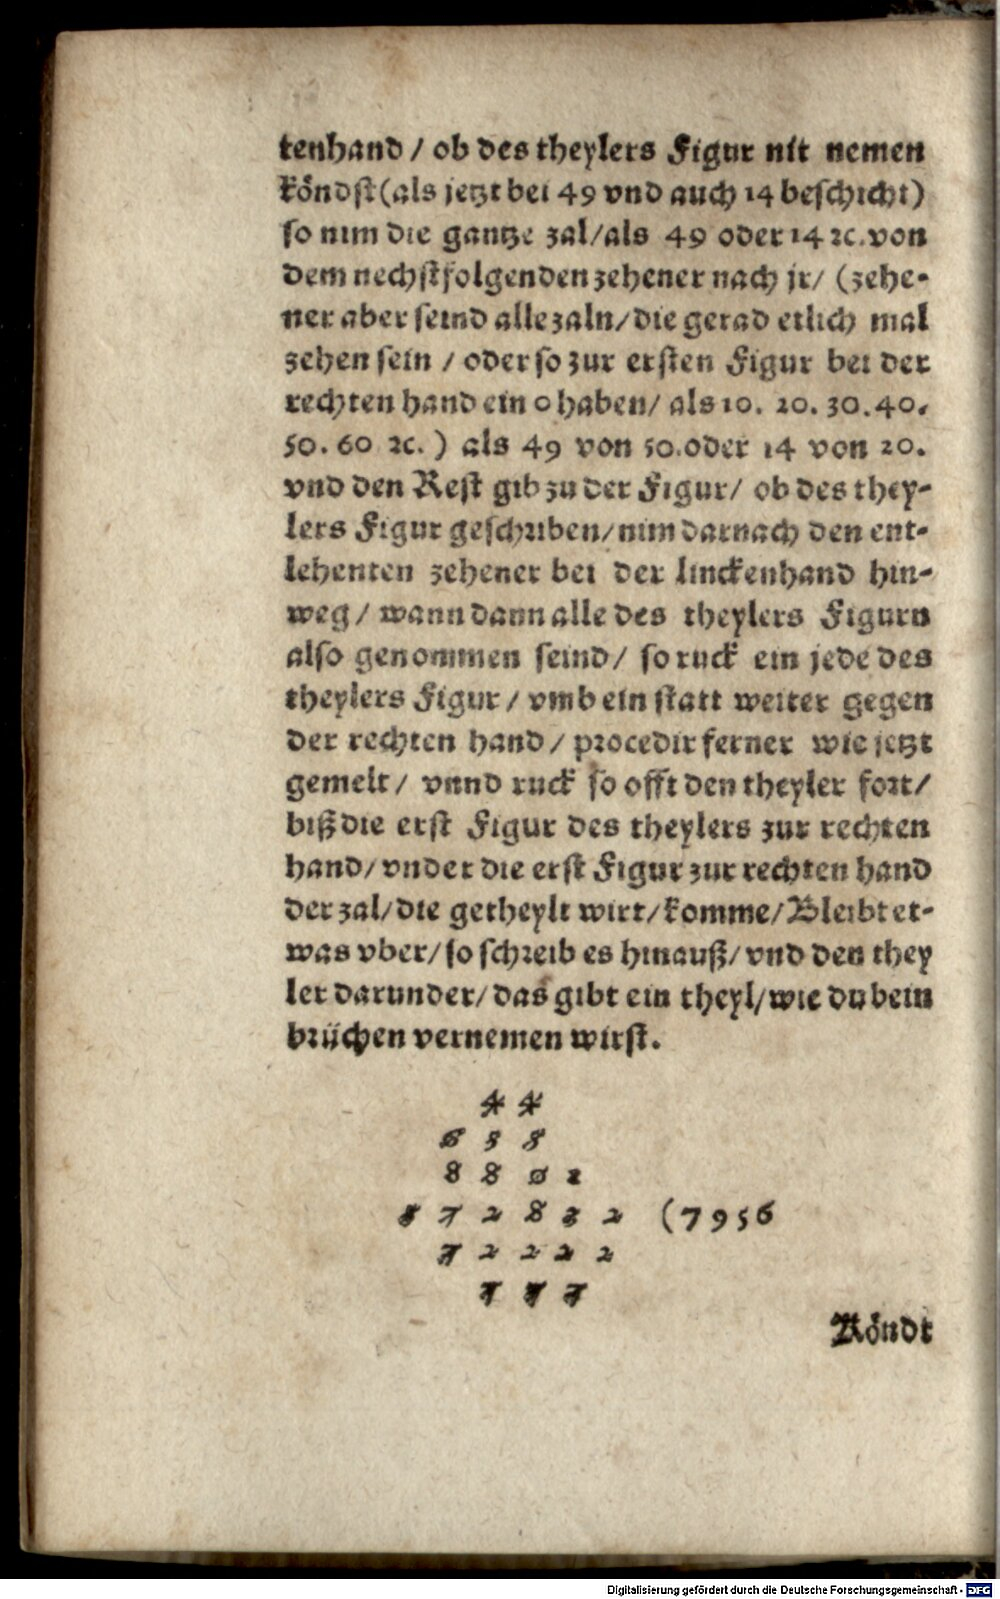 tenhand / ob des theylers Figur nit nemen
köndst (als jetzt bei 49 vnd auch 14 beschicht)
so nim die gantze zal/als 49 oder 14 ꝛc. von
dem nechstfolgenden zehener nach jr/ (zehe-
ner aber seind alle zaln/die gerad etlich mal
zehen sein / oder so zur ersten Figur bei der
rechten hand ein 0 haben/ als 10. 20. 30. 40.
50. 60 ꝛc. ) als 49 von 50. oder 14 von 20.
vnd den Rest gib zu der Figur/ ob des they-
lers Figur geschriben/nim darnach den ent-
lehenten zehener bei der linckenhand hin-
weg / wann dann alle des theylers Figurn
also genommen seind/ so ruck ein jede des
theylers Figur / vmb ein statt weiter gegen
der rechten hand / procedir ferner wie jetzt
gemelt / vnnd ruck so offt den theyler fort/
biß die erst Figur des theylers zur rechten
hand/vnder die erst Figur zur rechten hand
der zal/die getheylt wirt/komme/Bleibt et-
was vber/so schreib es hinauß/vnd den they
ler darunder/das gibt ein theyl/wie du bein
brüchen vernemen wirst.
4 4
6 5 5
8 8 0 1
5 7 2 8 3 2 (7956
7 2 2 2 2
7 7 7
Köndt
Digitalisierung gefördert durch die Deutsche Forschungsgemeinschaft - DFG